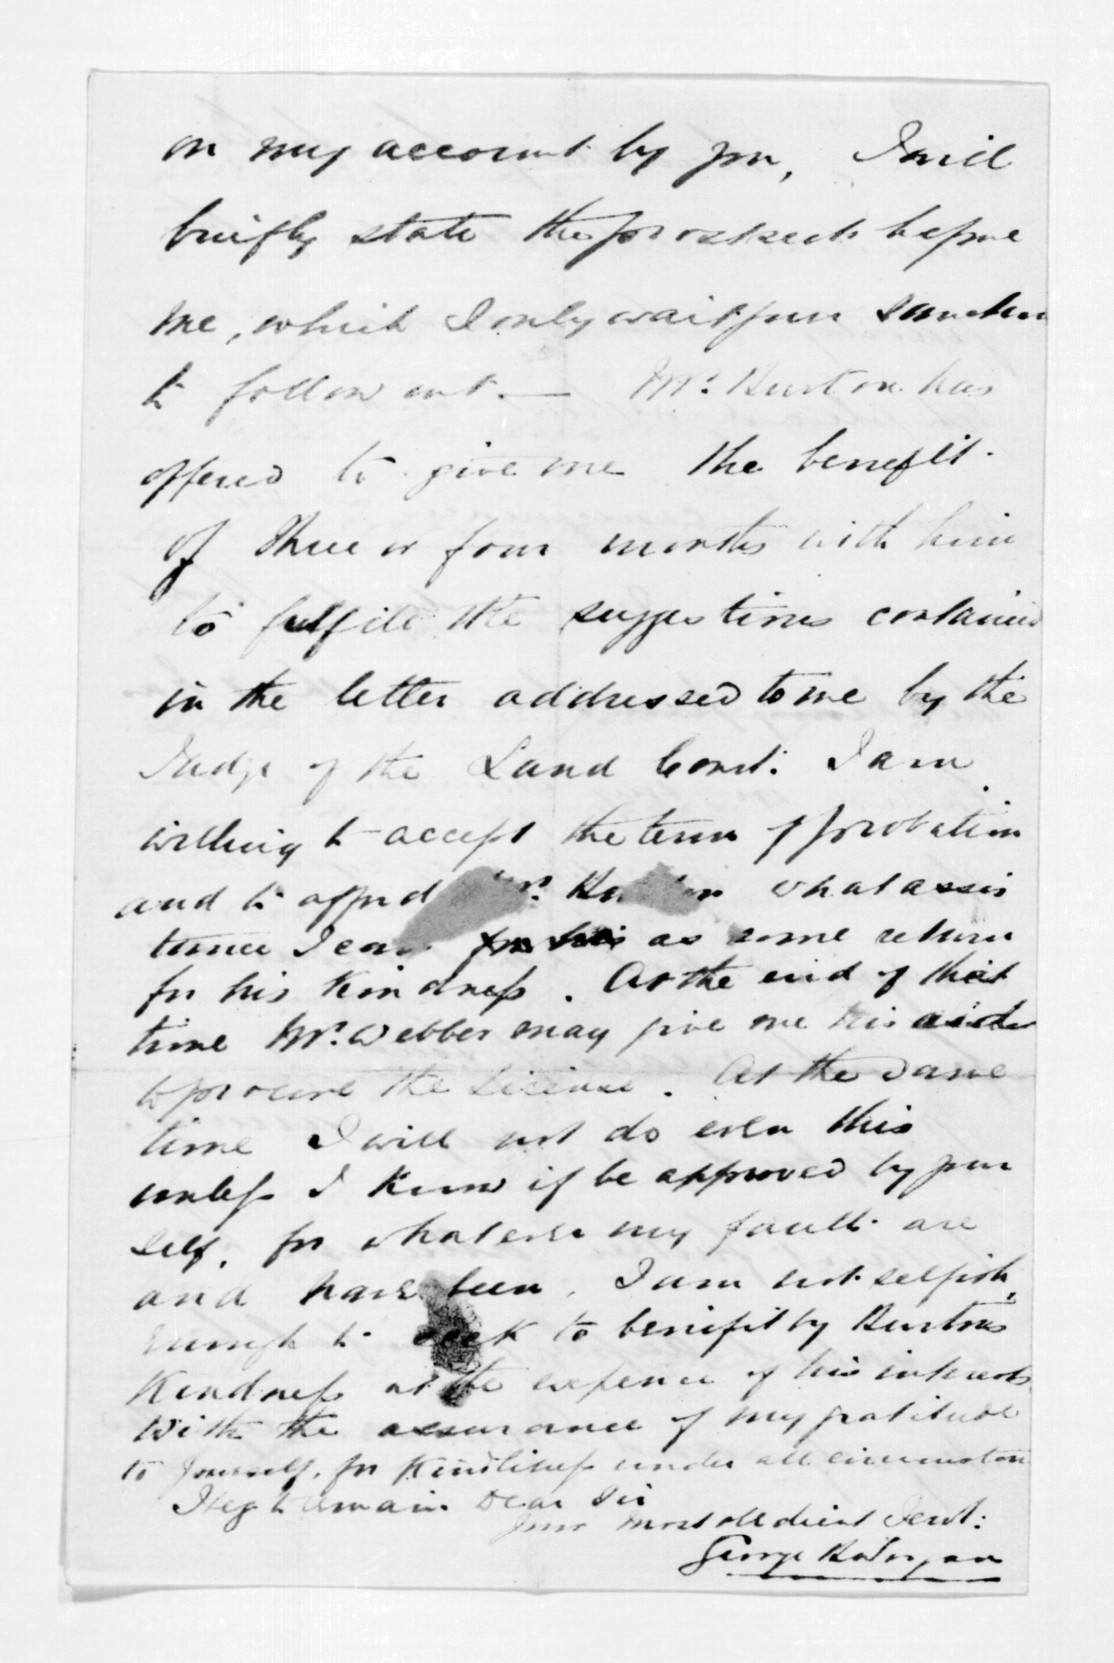 on my account by you, I will
briefly state the prospects before
me, which I only wait your sanction
to follow out. — Mr. Burton has
offered to give me the benefit
of three or four months with him
to fulfil the suggestions contained
in the letter addressed to me by the
Judge of the Land Court. I am
willing to accept the term of probation
and to afford Mr. what assis
tance I can for his as some return
for his kindness. At the end of that
time Mr. Webber may give me his
to procure the License. At the same
time I will not do even this
unless I know if be approved by your
self, for whatever my faults are
and have been, I am not selfish,
enough to seek to benefit by Burtons
kindness at the expence of his interests
With the assurance of my gratitude
to yourself, for kindliness under all circumstan
I beg to remain Dear Sir
Your most obedient Servt:
George